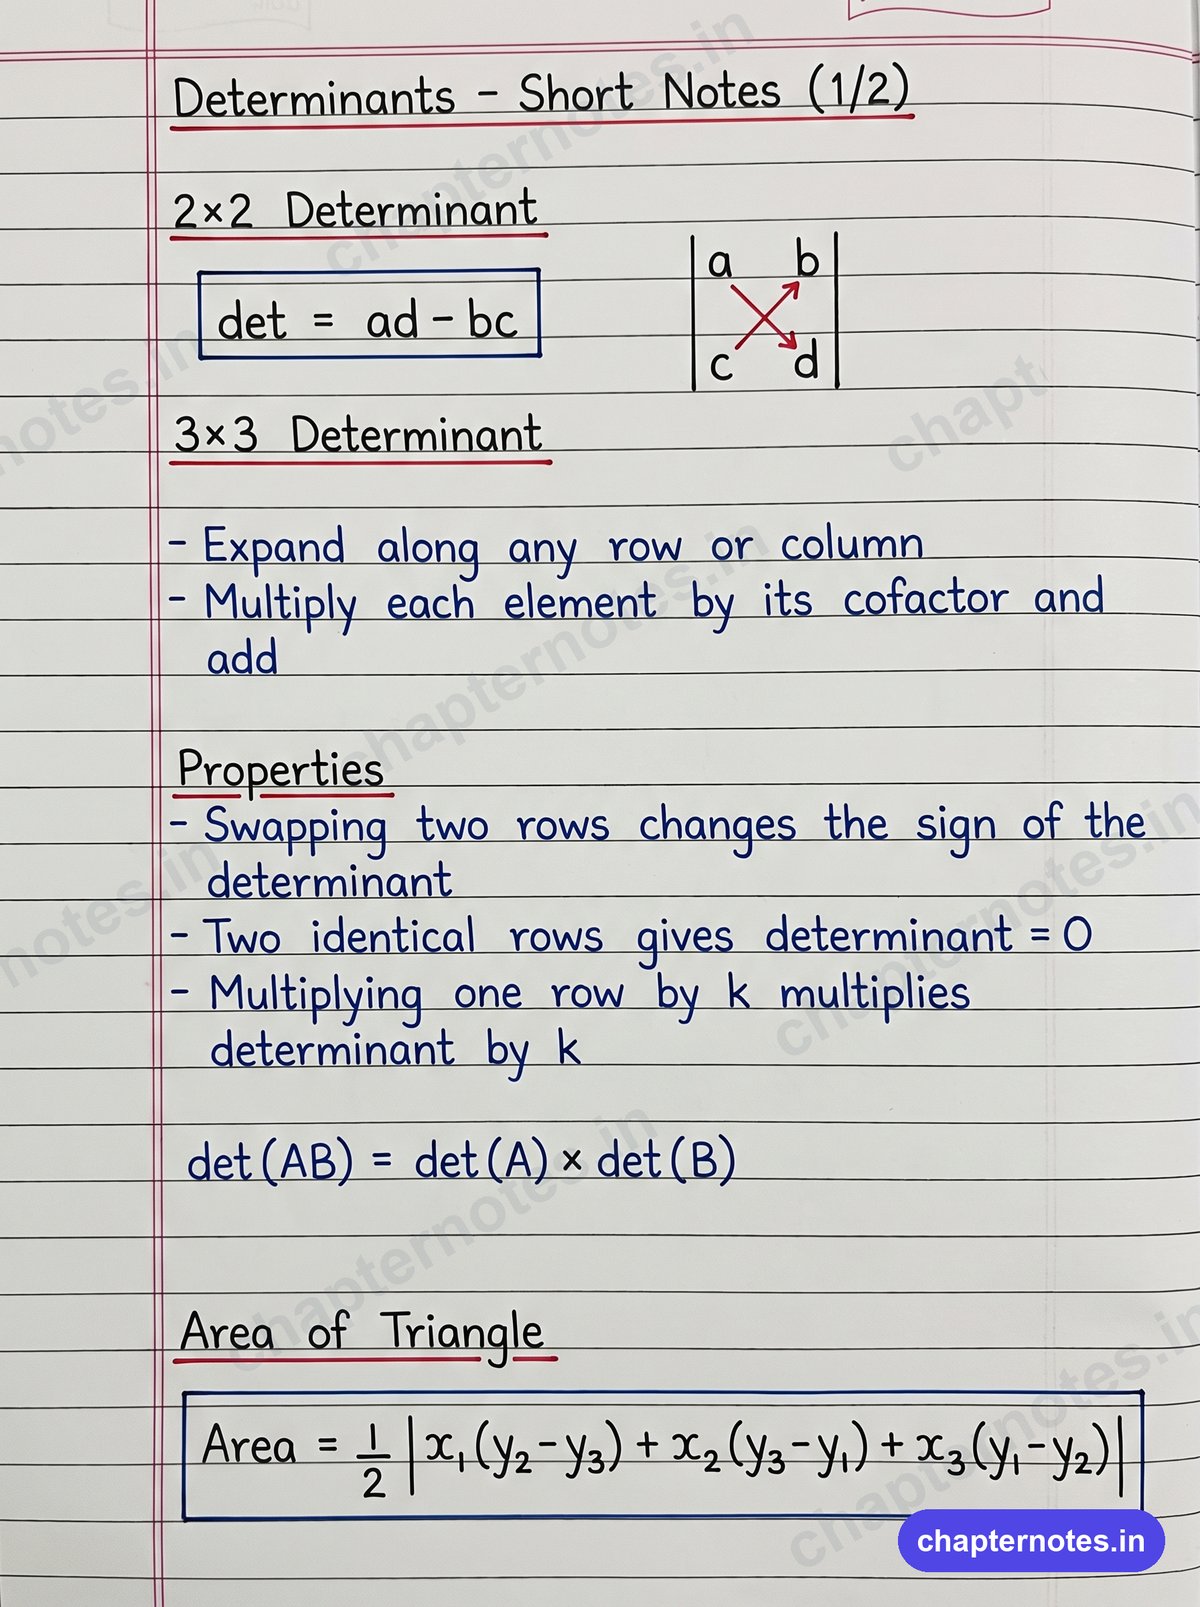 Determinants - Short Notes (1/2)
2×2 Determinant
det = ad - bc
a b
c d
3×3 Determinant
- Expand along any row or column
- Multiply each element by its cofactor and
add
Properties
- Swapping two rows changes the sign of the
determinant
- Two identical rows gives determinant = 0
- Multiplying one row by k multiplies
determinant by k
det(AB) = det(A) × det(B)
Area of Triangle
Area = 1/2 |x₁(y₂-y₃) + x₂(y₃-y₁) + x₃(y₁-y₂)|
chapternotes.in